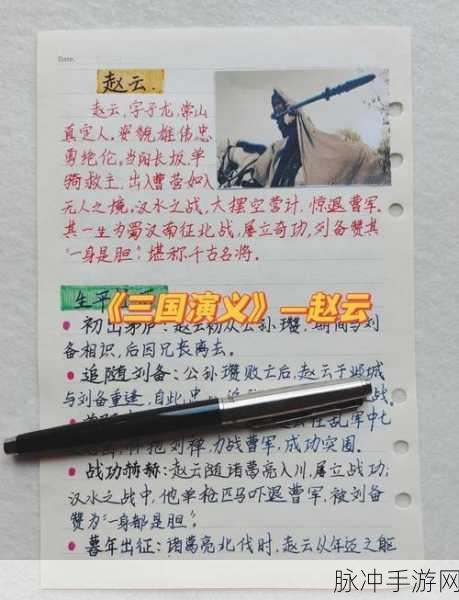 Date
赵云.
赵云,字子龙,常山
真定人。姿貌雄伟,忠
勇绝伦。当阳长坂,单
骑救主,出入曹营如入
无人之境。汉水之战,大摆空营计,惊退曹军。
其一生为蜀汉南征北战,屡立奇功,刘备赞其
"一身是胆",堪称千古名将。
生平
《三国演义》—赵云
初出茅庐:赵云初从公孙瓒,期间与刘
备相识,后因兄长离去。
追随刘备:公孙瓒败亡后,赵云于邺城
与刘备重逢,自此忠
战。
在乱军中七
怀抱刘禅,力战曹军,成功突围。
战功赫赫:赵云随诸葛亮入川,屡立战功;
汉水之战中,他单枪匹马吓退曹军,被刘备
赞为"一身都是胆"。
暮年出征:诸葛亮北伐时,赵云以年迈之躯
脉冲手游网